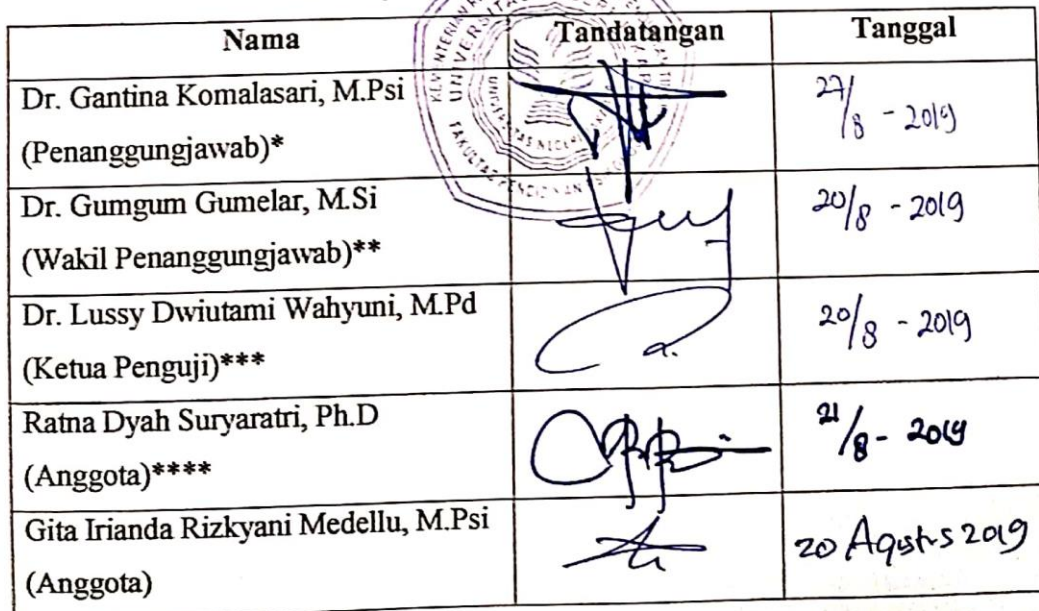 Nama Tandatangan Tanggal
Dr. Gantina Komalasari, M.Psi
(Penanggungjawab)*
27/8 - 2019
Dr. Gumgum Gumelar, M.Si
(Wakil Penanggungjawab)**
20/8 - 2019
Dr. Lussy Dwiutami Wahyuni, M.Pd
(Ketua Penguji)***
20/8 - 2019
Ratna Dyah Suryaratri, Ph.D
(Anggota)****
21/8 - 2019
Gita Irianda Rizkyani Medellu, M.Psi
(Anggota)
20 Agustus 2019